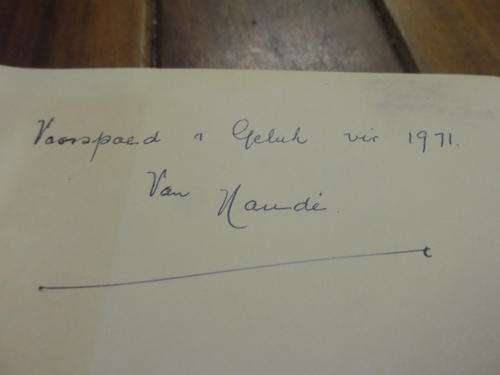 Voorspoed & Geluk vir 1971.
Van
Naudé.